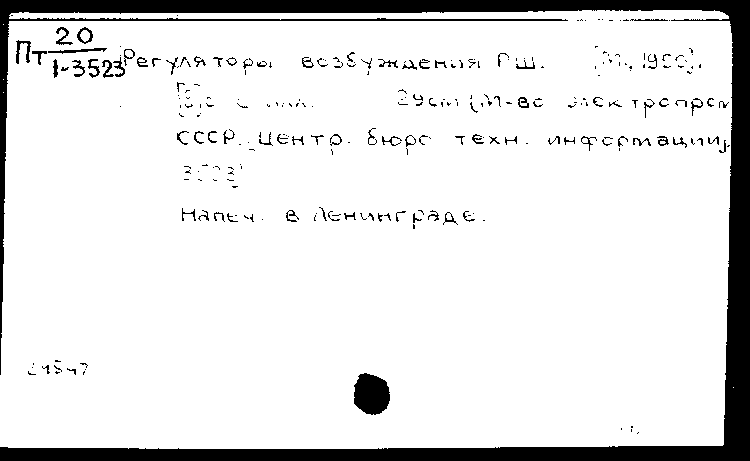 Пт 20/1-3523 Регуляторы возбуждения РШ. [М., 1950].
с илл. 29см (М-во электропром
СССР. Центр. бюро техн. информации,
3523)
Напеч. в Ленинграде.
21547